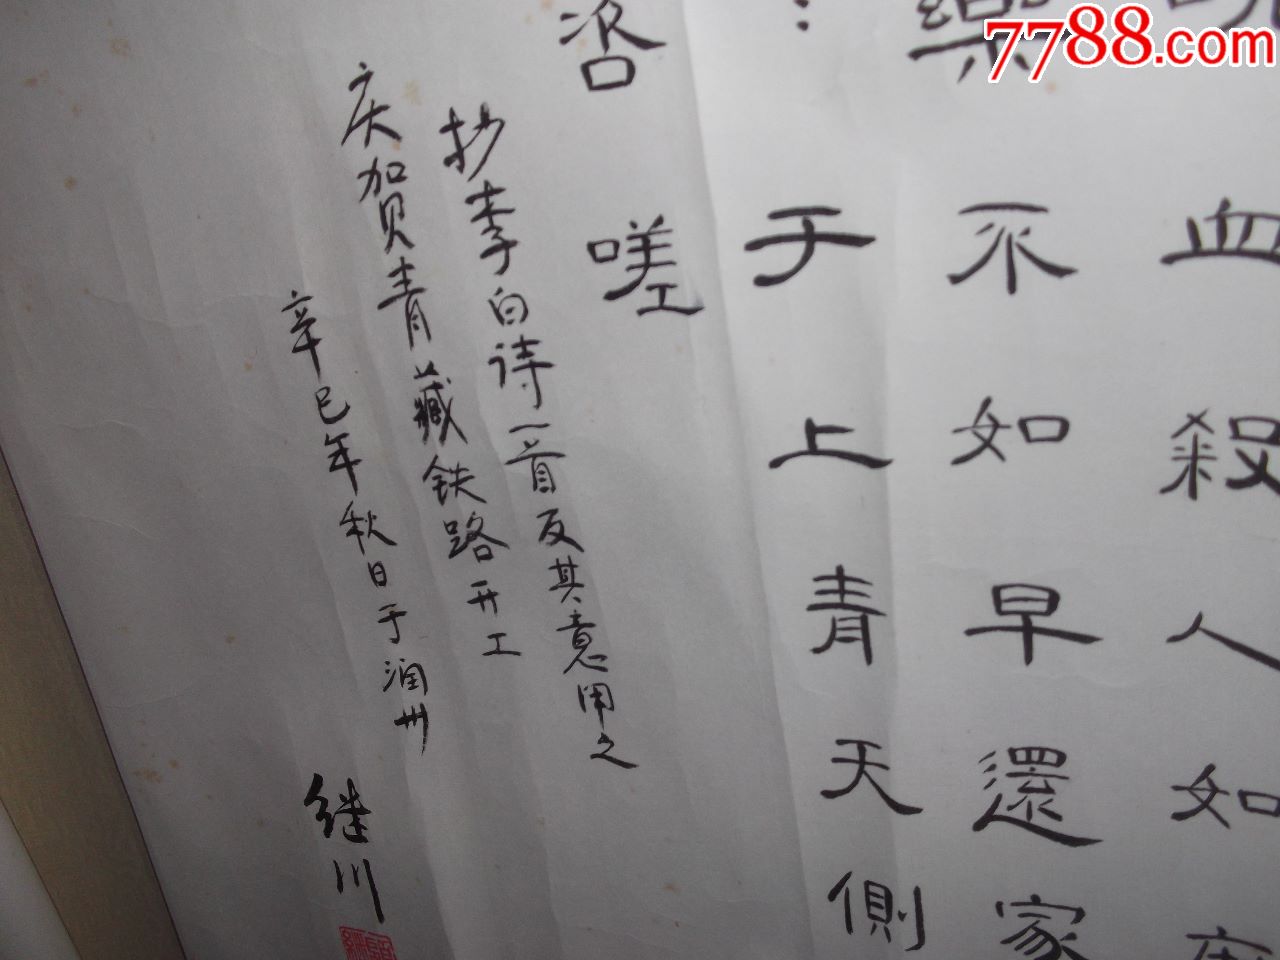 7788.com
血殺人如
樂不如早還家
于上青天側
咨嗟
抄李白诗一首反其意用之
庆贺青藏铁路开工
辛巳年秋日于润州
继川